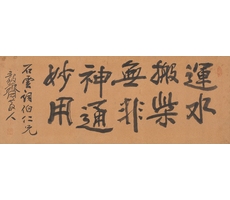 運水
搬柴
無非
神通
妙用
石雲詞伯仁兄